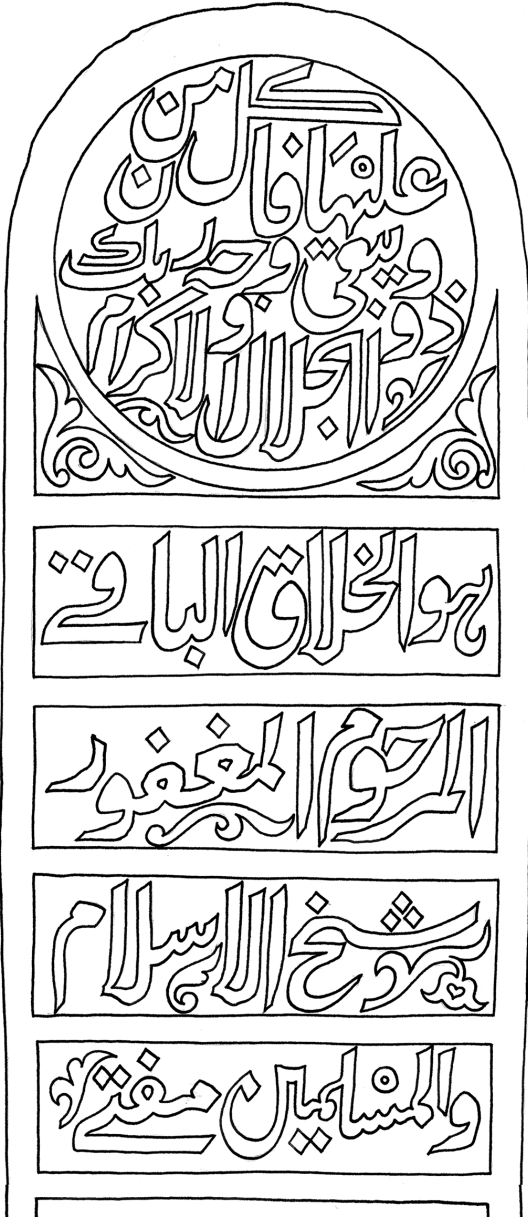 كل من
عليها فان
ويبقى وجه ربك
ذو الجلال والاكرام
هو الخلاق الباقي
المرحوم المغفور
شيخ الاسلام
والمسلمين مفتي